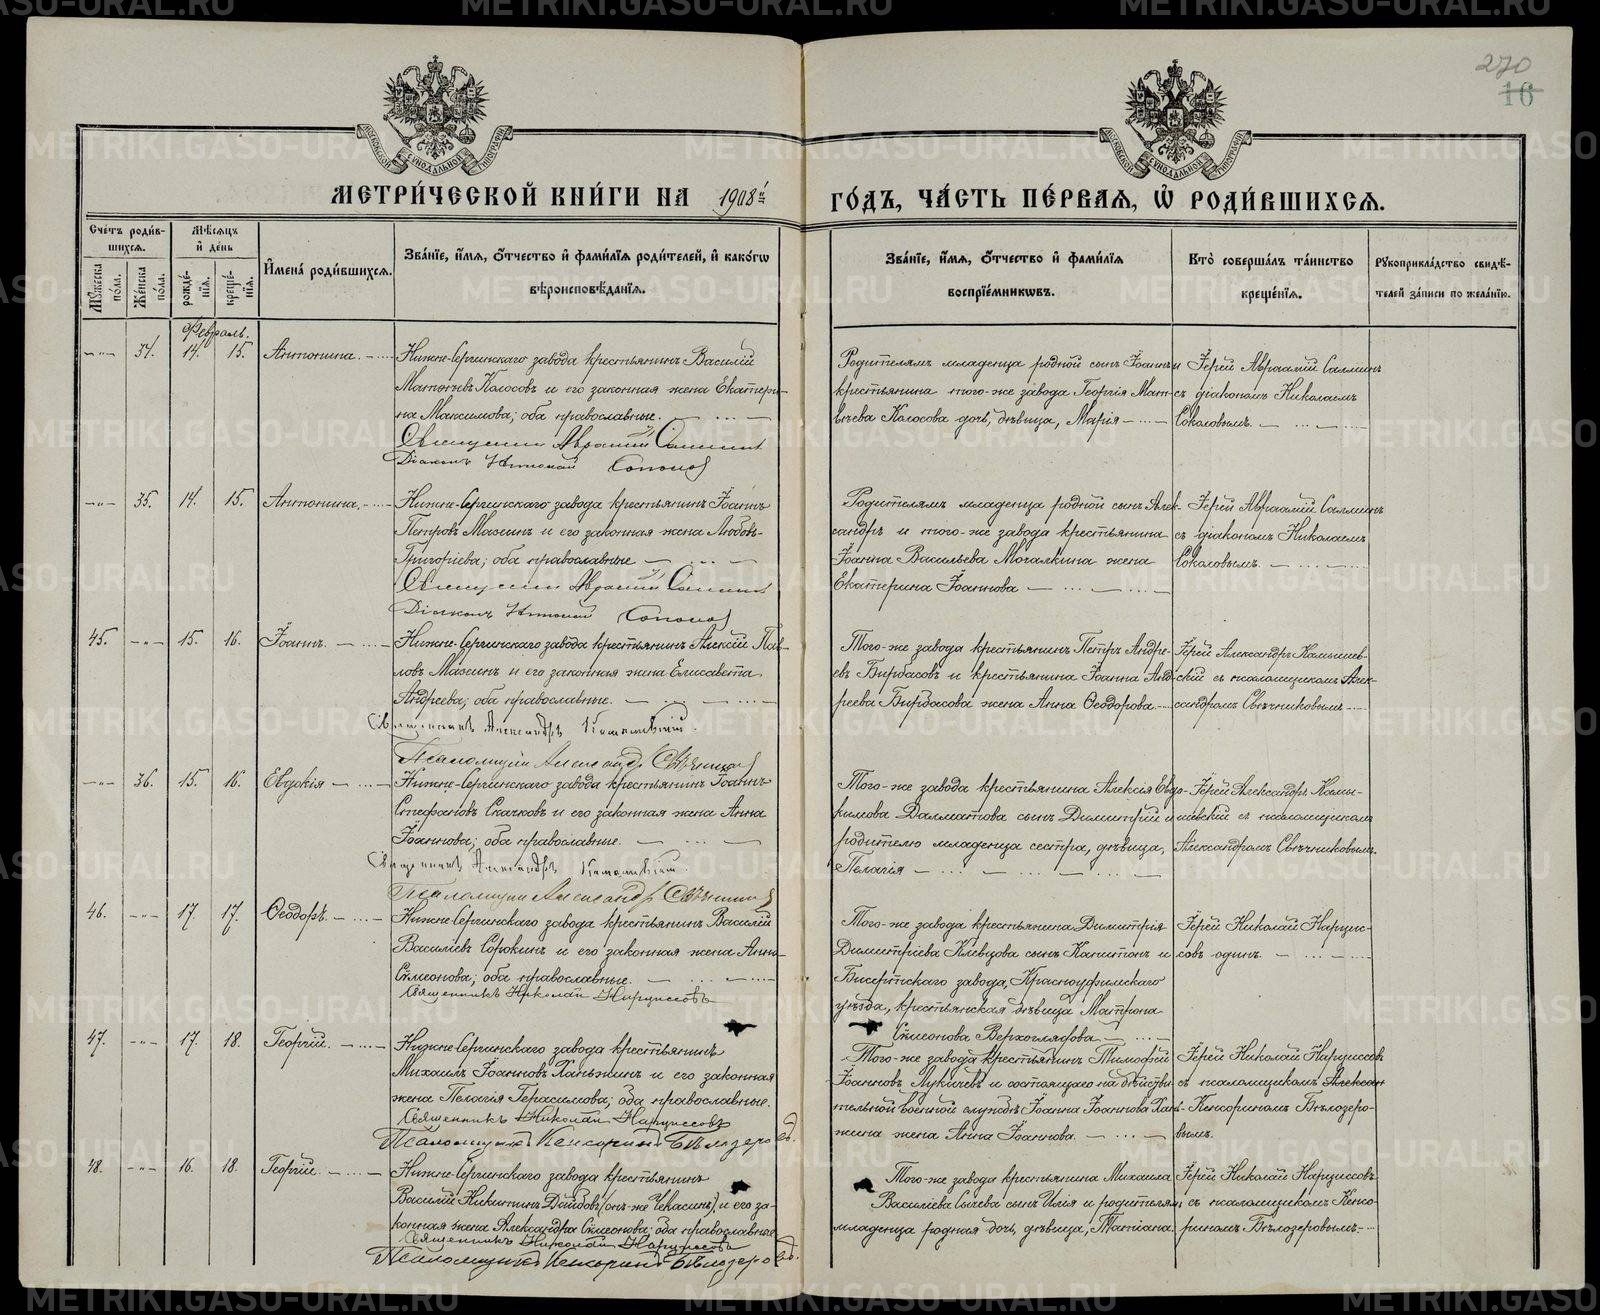 METRIKI.GASO-URAL.RU
270
16
МОСКОВСКОЙ СѴНОДАЛЬНОЙ ТИПОГРАФІИ
МОСКОВСКОЙ СѴНОДАЛЬНОЙ ТИПОГРАФІИ
МЕТРИ́ЧЕСКОЙ КНИ́ГИ НА 1908й
ГО́ДЪ, ЧА́СТЬ ПЕ́РВАЯ, Ѡ҆ РОДИ́ВШИХСЯ.
Сче́тъ роди́вшихся.
Мѹ́жеска по́ла.
Же́нска по́ла.
Мѣ́сяцъ и҆ де́нь
рожде́нїя.
креще́нїя.
И҆мена̀ роди́вшихся.
Зва́нїе, и҆́мя, ѻ҆́тчество и҆ фами́лїя роди́телей, и҆ како́гѡ
вѣроисповѣ́данїя.
Зва́нїе, и҆́мя, ѻ҆́тчество и҆ фами́лїя
воспрїе́мникѡвъ.
Кто̀ соверша́лъ та́инство
креще́нїя.
Рѹкоприкла́дство свидѣ́-
телей за́писи по жела́нїю.
Февраль.
-"- 34. 14. 15. Антонина.
Нижне-Сергинскаго завода крестьянинъ Василій
Матѳеевъ Колосовъ и его законная жена Екатери-
на Максимова; оба православные.
Священникъ Авраамій Саллинъ
Діаконъ Николай Соколов
Родителямъ младенца родной сынъ Іоаннъ и
крестьянина того-же завода Георгія Мат-
ѳеева Колосова дочь, дѣвица, Марія
Іерей Авраамій Саллинъ
съ діакономъ Николаемъ
Соколовымъ.
-"- 35. 14. 15. Антонина.
Нижне-Сергинскаго завода крестьянинъ Іоаннъ
Петровъ Мазеинъ и его законная жена Любовь
Григоріева; оба православные
Священникъ Авраамій Саллинъ
Діаконъ Николай Соколов
Родителямъ младенца родной сынъ Алек-
сандръ и того-же завода крестьянина
Іоанна Васильева Мочалкина жена
Екатерина Іоаннова
Іерей Авраамій Саллинъ
съ діакономъ Николаемъ
Соколовымъ.
45. -"- 15. 16. Іоаннъ.
Нижне-Сергинскаго завода крестьянинъ Алексій Пав-
ловъ Мазеинъ и его законная жена Елисавета
Андреева; оба православные.
Священникъ Александръ Камышевскій.
Псаломщикъ Александр Свѣчников
Того-же завода крестьянинъ Петръ Андре-
евъ Бирбасовъ и крестьянина Іоанна Анд-
реева Бирбасова жена Анна Ѳеодорова
Іерей Александръ Камышев-
скій съ псаломщикомъ Алек-
сандромъ Свѣчниковымъ
-"- 36. 15. 16. Евдокія
Нижне-Сергинскаго завода крестьянинъ Іоаннъ
Стефановъ Скачковъ и его законная жена Анна
Іоаннова; оба православные.
Священникъ Александръ Камышевскій.
Псаломщикъ Александр Свѣчников
Того-же завода крестьянина Алексія Евдо-
кимова Далматова сынъ Димитрій и
родителю младенца сестра, дѣвица,
Пелагія
Іерей Александръ Камы-
шевскій съ псаломщикомъ
Александромъ Свѣчниковымъ.
46. -"- 17. 17. Ѳеодоръ.
Нижне-Сергинскаго завода крестьянинъ Василій
Василіевъ Сорокинъ и его законная жена Анна
Сѵмеонова; оба православные.
Священникъ Николай Нарциссовъ
Того-же завода крестьянина Димитрія
Димитріева Клевцова сынъ Капитонъ и
Бисертскаго завода, Красноуфимскаго
уѣзда, крестьянская дѣвица Матрона
Сѵмеонова Верхоглядова
Іерей Николай Нарцис-
совъ одинъ.
47. -"- 17. 18. Георгій.
Нижне-Сергинскаго завода крестьянинъ
Михаилъ Іоанновъ Ханжинъ и его законная
жена Пелагія Герасимова; оба православные.
Священникъ Николай Нарциссовъ
Псаломщикъ Кенсоринъ Бѣлозеров
Того-же завода крестьянинъ Тимоѳей
Іоанновъ Лукичевъ и состоящаго на дѣйстви-
тельной военной службѣ Іоанна Іоаннова Хан-
жина жена Анна Іоаннова.
Іерей Николай Нарциссовъ
съ псаломщикомъ Алексан
Кенсориномъ Бѣлозеро-
вымъ.
48. -"- 16. 18. Георгій.
Нижне-Сергинскаго завода крестьянинъ
Василій Никитинъ (онъ-же Чекасинъ), и его за-
конная жена Александра Сѵмеонова; оба православные
Священникъ Николай Нарциссовъ
Псаломщикъ Кенсоринъ Бѣлозеров
Того-же завода крестьянина Михаила
Василіева Сычева сынъ Илія и родителямъ
младенца родная дочь, дѣвица, Татіана.
Іерей Николай Нарциссовъ
съ псаломщикомъ Кенсо-
риномъ Бѣлозеровымъ.